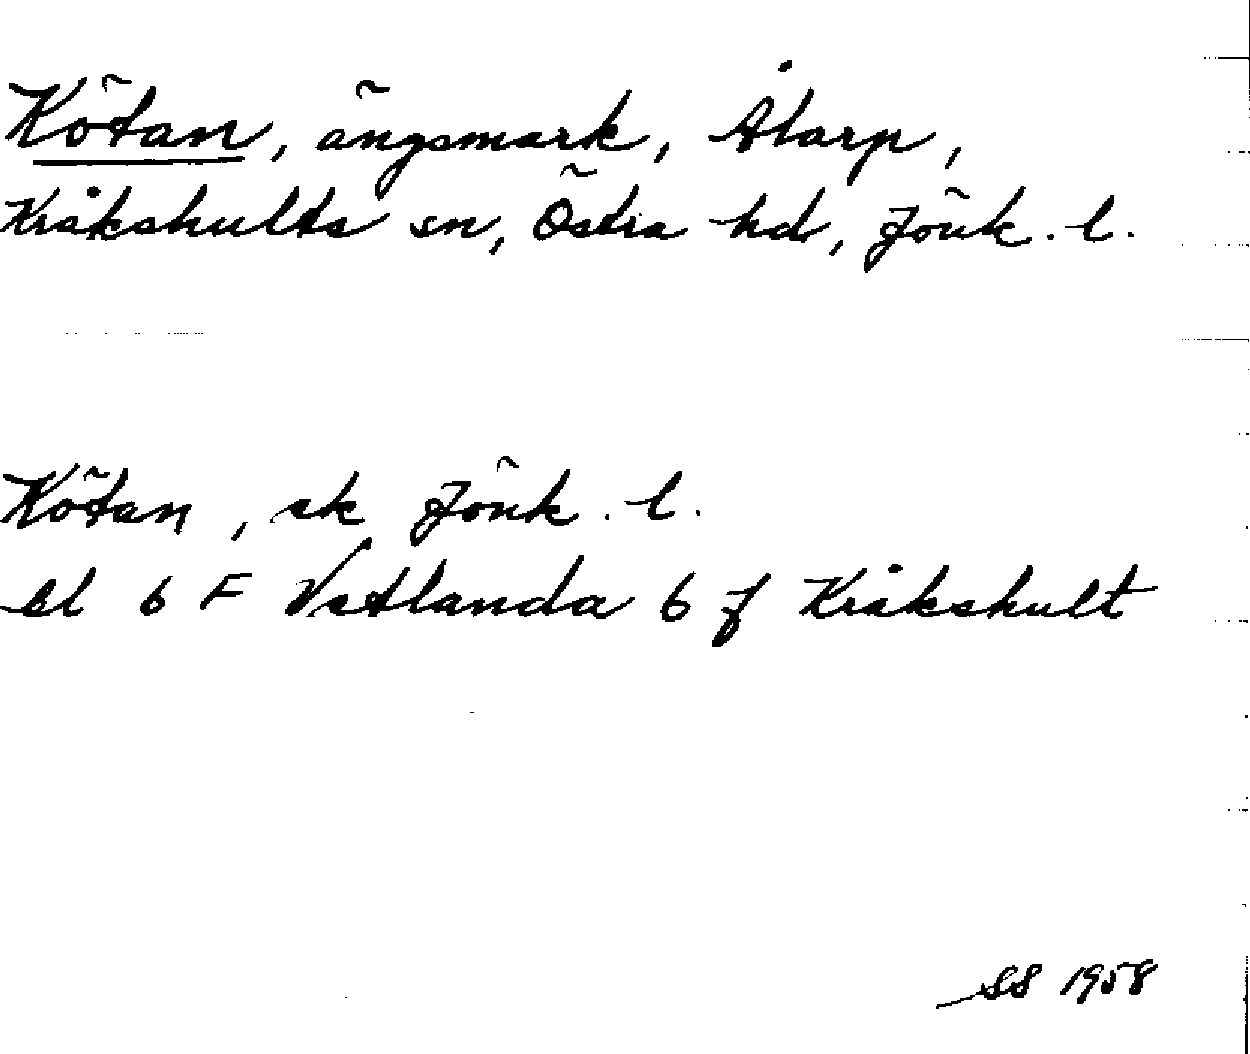 Kötan, ängsmark, Åtarp,
Kråkshults sn, Östra hd, Jönk. l.
Kötan, ek Jönk. l.
bl 6 F Vetlanda 6 f Kråkshult
SS 1958